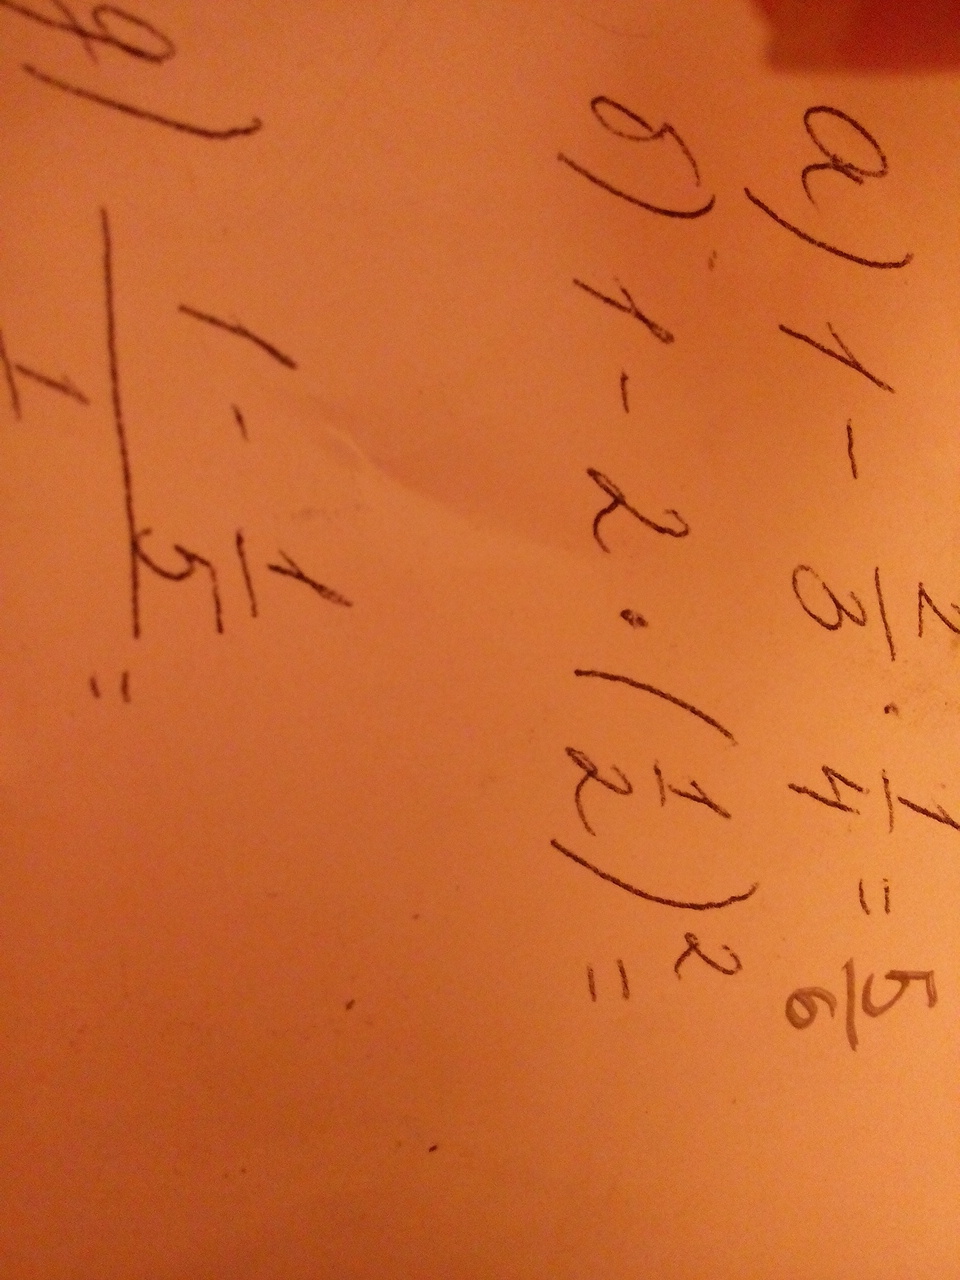 а) 1 - 2/3 · 1/4 = 5/6
б) 1 - 2 · (1/2)² =
1 - 1/5
=
1